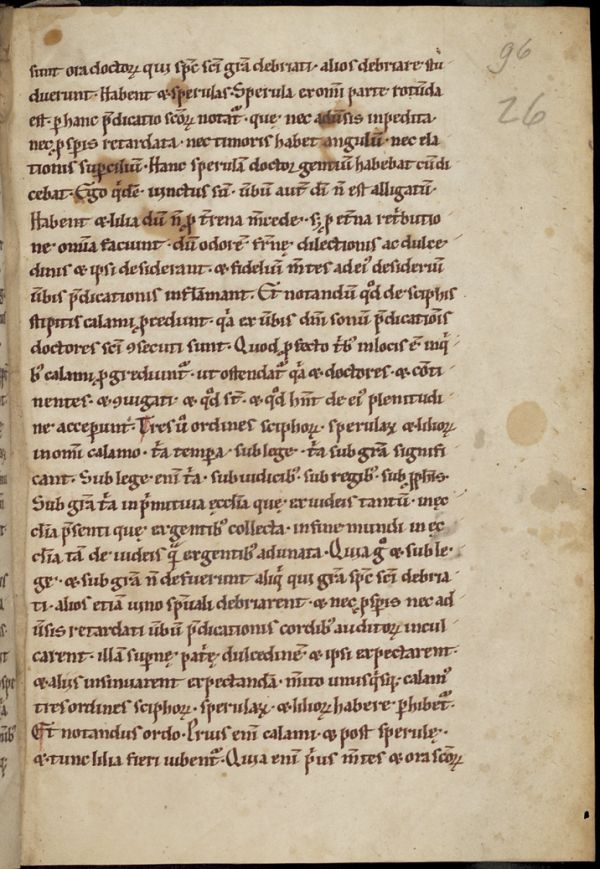 96
26
sunt ora doctoꝝ qui sp̅c sc̅i gr̅a debriati · alios debriare stu
duerunt · Habent & sperulas · Sperula ex omni parte rotunda
est · p̲ hanc p̅dicatio sc̅oꝝ notat᷑ · quę nec aduersis inpedita ·
nec ꝓsp̲is retardata · nec timoris habet angulu̅ · nec ela
tionis sup̲ciliu̅ · Hanc sperula̅ doctor gentiu̅ habebat cu̅ di
cebat · Ego q'de̅ uinctus su̅ · ub̅um aut̅ di̅ n̅ est alligatu̅ ·
Habent & lilia du̅ n̅ ꝓ t̅rena m̅cede · s; ꝓ et̅na ret'butio
ne omnia faciunt · du̅ odore̅ fr̅nę dilectionis ac dulce
dinis & ipsi desiderant · & fideliu̅ m̅tes ad ei' desideriu̅
ub̅is p̅dicationis inflammant · Et notandu̅ qd̅ de sciphis
stipitis calami ꝓcedunt · q̅a ex ub̅is dni̅ sonu̅ p̅dicatio̅is
doctores sc̅i ꝯsecuti sunt · Quod ꝓfecto t'b; in locis e̅ · in q'
b; calami ꝓgrediunt᷑ · ut ostendat᷑ q̅a & doctores · & co̅ti
nentes · & ꝯiugati · & qd̅ st̅ · & qd̅ hn̅t de ei' plenitudi
ne accep̲unt · Tres u̅ ordines sciphoꝝ · sperulaꝝ & lilioꝝ
in omni calamo · t'a tempora · sub lege · t'a sub gra̅ signifi
cant · Sub lege eni̅ t'a · sub iudicib; · sub regib; · sub ꝓphis̅ ·
Sub gra̅ t'a in p'mitiua ęccl̅ia quę ex iudeis tantu̅ · in ęc
cl̅ia p̅senti quę ex gentib; collecta · in fine mundi in ęc
cl̅ia ta̅ de iudeis q̅ ex gentib; adunata · Quia g̊ & sub le
ge · & sub gra̅ n̅ defuerunt aliq' qui gr̅a sp̅c sc̅i debria
ti · alios etia̅ uino sp̅uali debriarent · & nec ꝓsp̲is nec ad
u̅sis retardati ub̅um p̅dicationis cordib; auditoꝝ incul
carent · illa̅ supernę pat'ę dulcedine̅ & ipsi expectarent ·
& aliis insinuarent expectanda̅ · m̅ito unusq'sq; calam'
tres ordines sciphoꝝ · sperulaꝝ & lilioꝝ habere p̲hibet᷑ ·
Et notandus ordo · Prius eni̅ calami · & post sperulę ·
& tunc lilia fieri iubent᷑ · Quia eni̅ p'us m̅tes & ora sc̅oꝝ